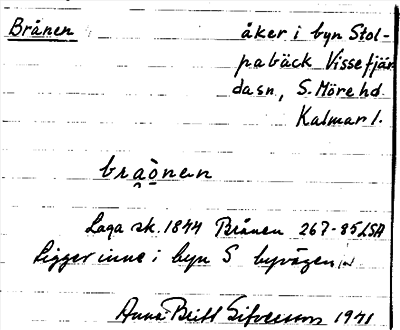 Brånen åker i byn Stol-
pabäck Vissefjär
dasn, S. Möre hd.
Kalmar l.
bra̯ònen
Laga sk. 1844 Brånen 267-85 LSA
Ligger inne i byn S byvägen
Anna Britt Sifversson 1971